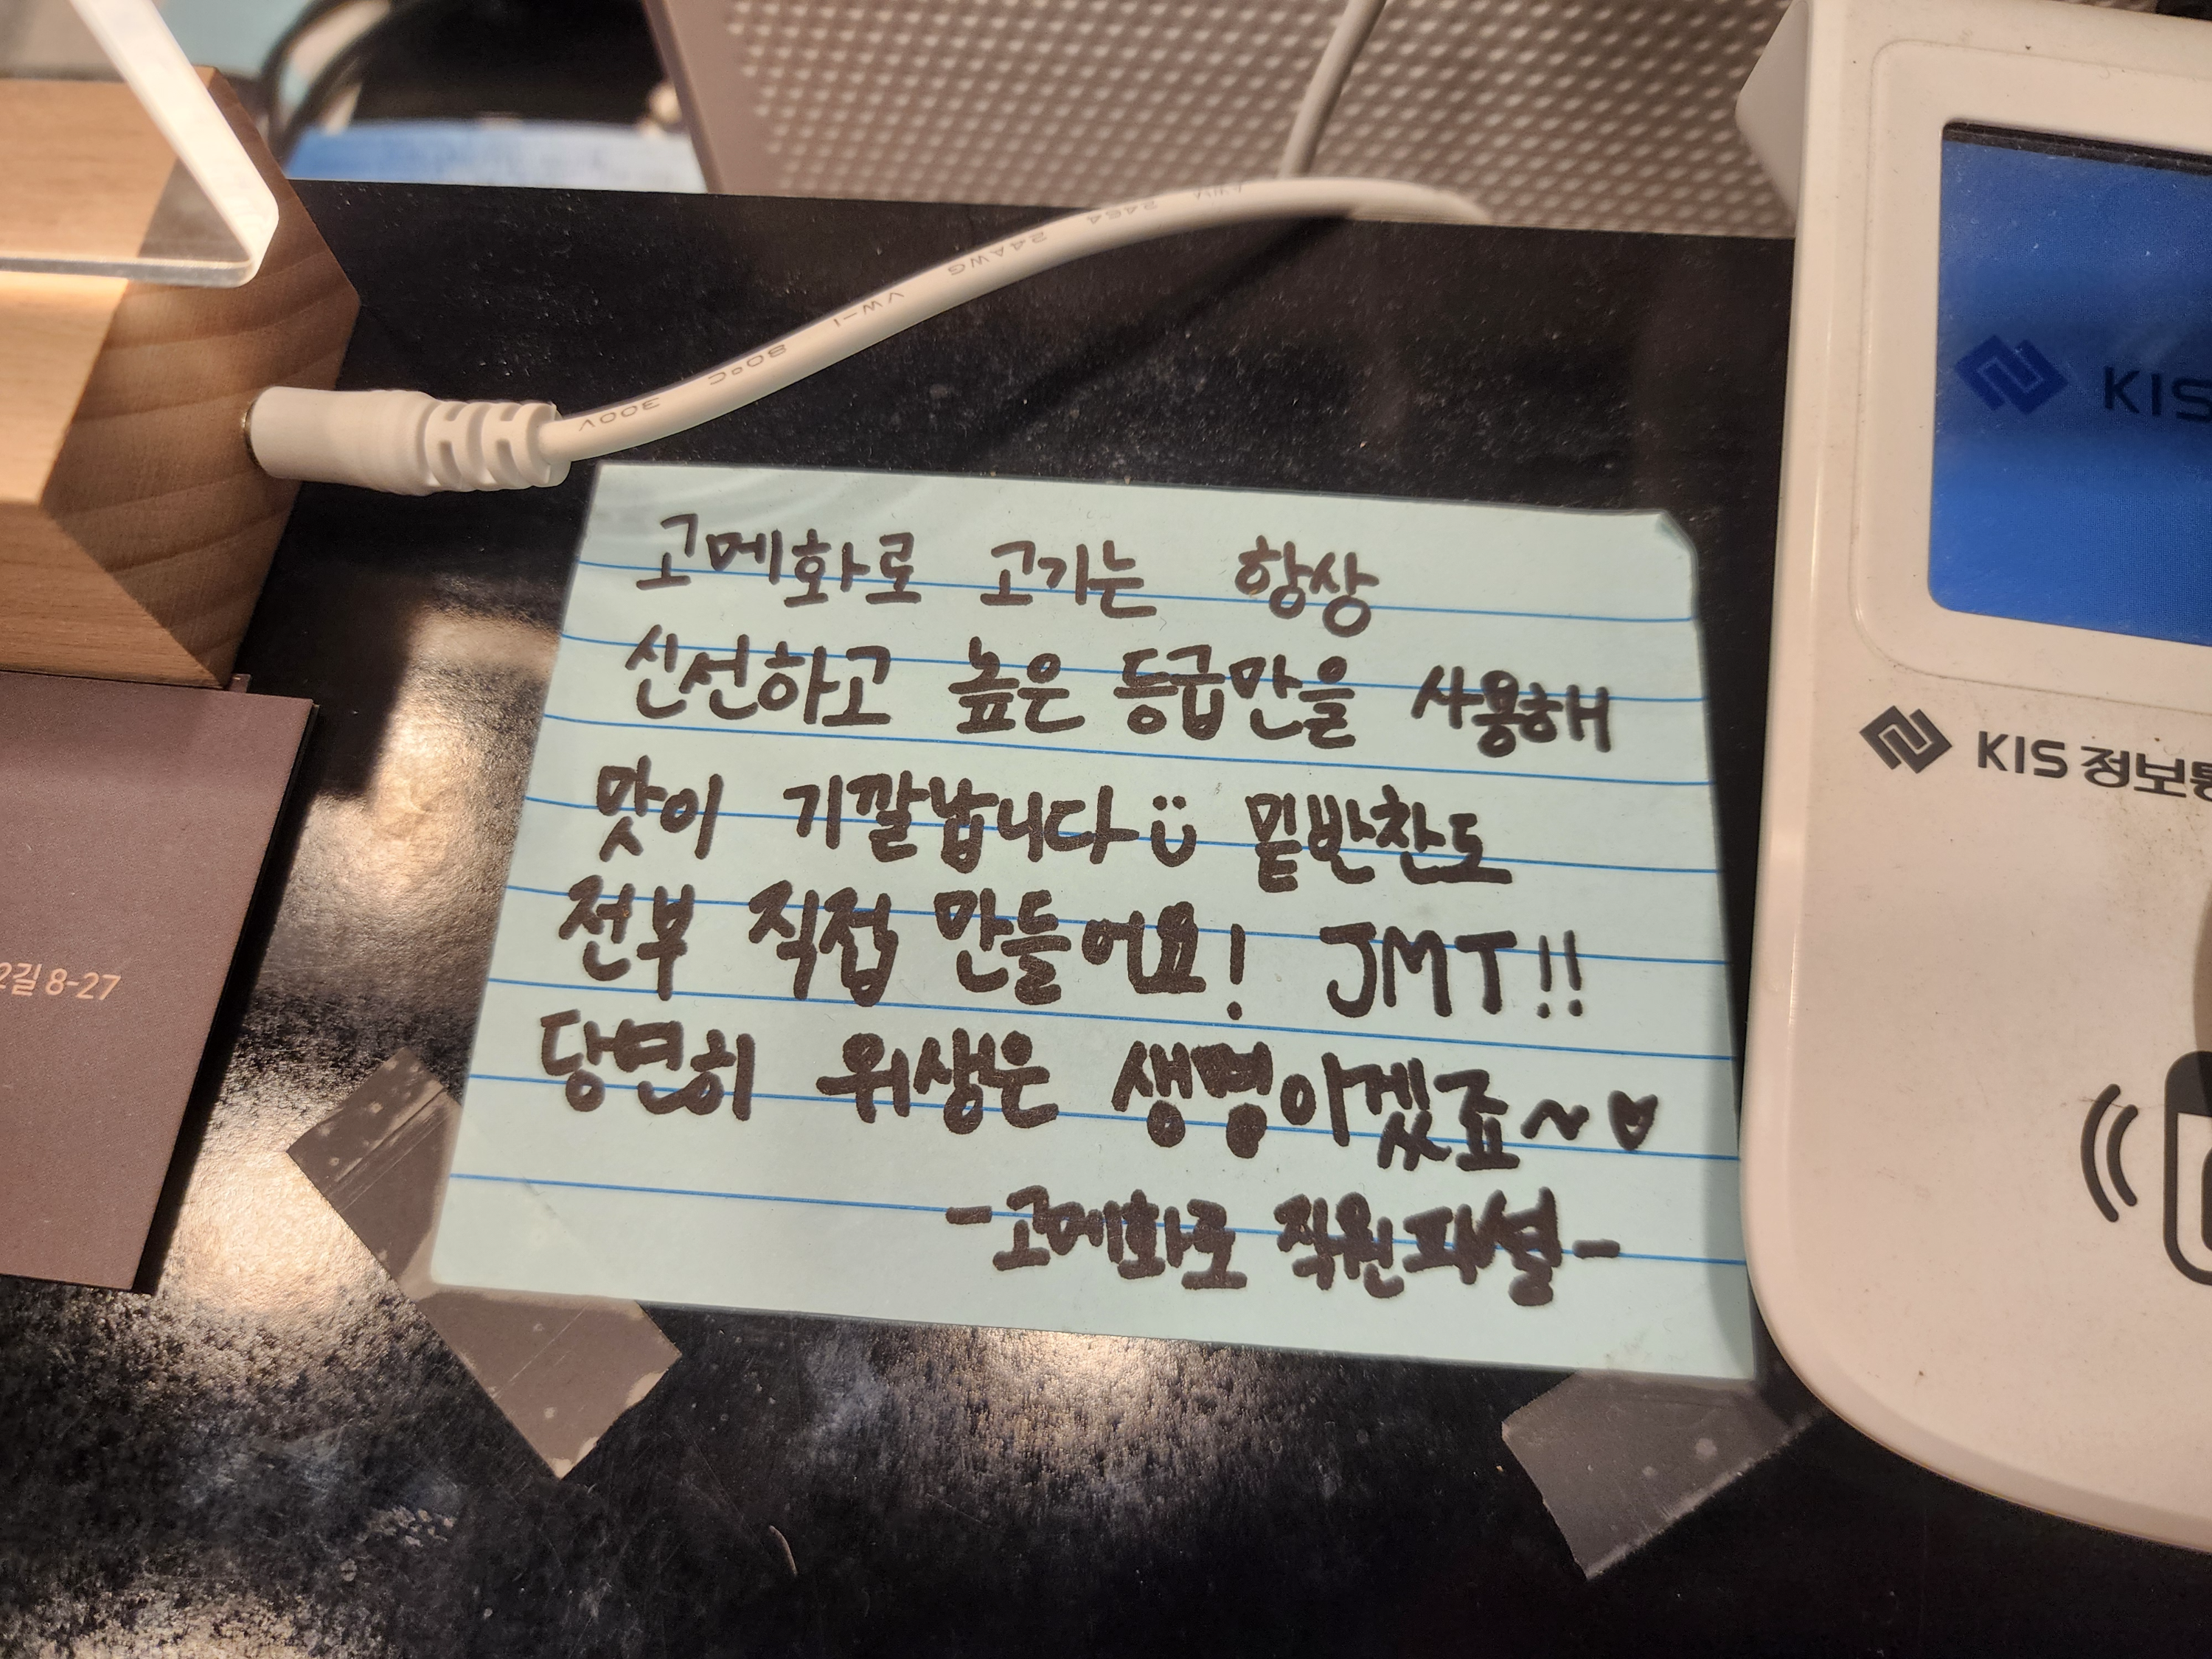 고메화로 고기는 항상
신선하고 높은 등급만을 사용해
맛이 기깔납니다 밑반찬도
전부 직접 만들어요! JMT!!
당연히 위생은 생명이겠죠~♡
-고메화로 직원피셜-
KIS
KIS 정보통
2길 8-27
300V
80°C
VW-1
24AWG
2464